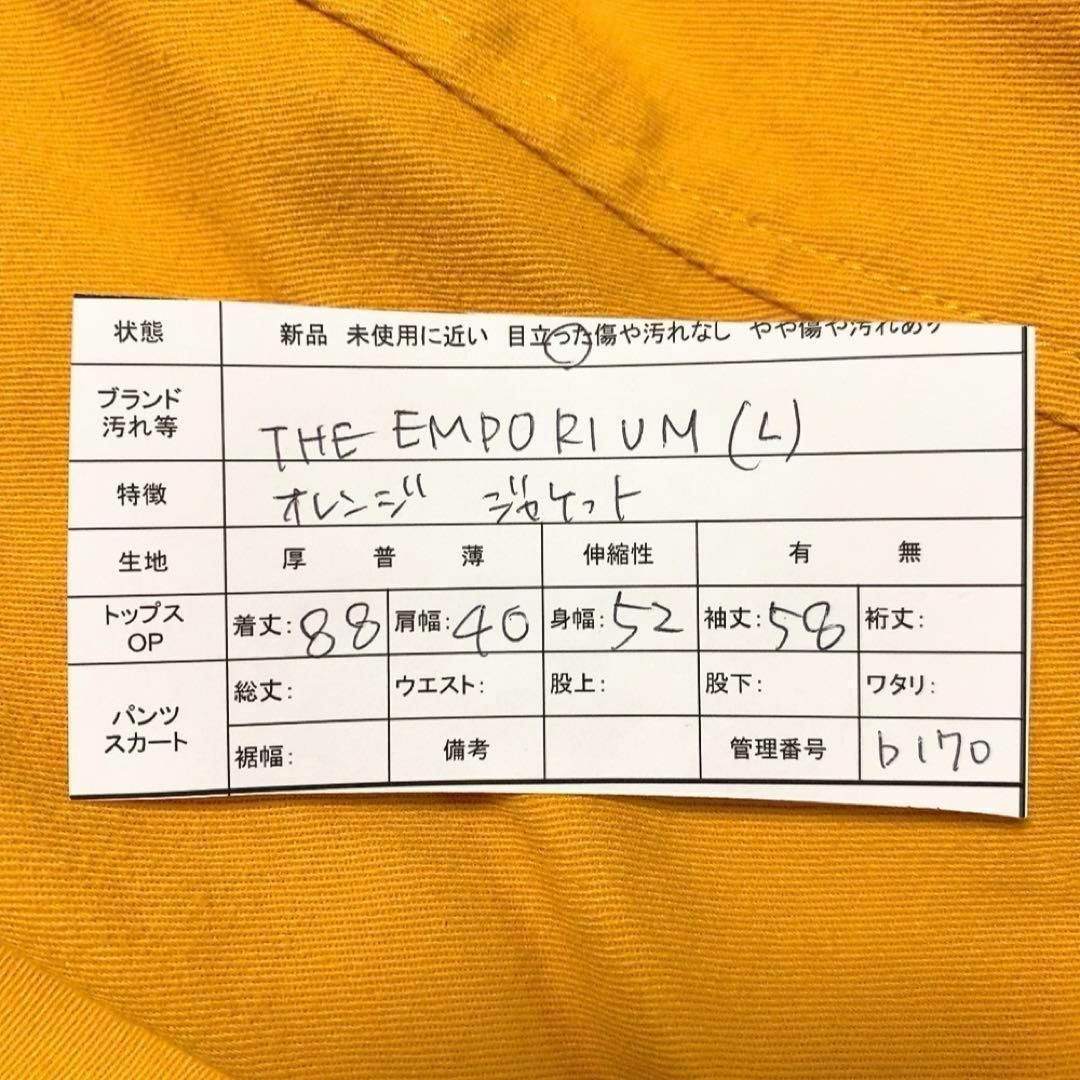 状態 新品 未使用に近い 目立った傷や汚れなし やや傷や汚れあり
ブランド
汚れ等 THE EMPORIUM (L)
特徴 オレンジ ジャケット
生地 厚 普 薄 伸縮性 有 無
トップス
OP 着丈: 88 肩幅: 40 身幅: 52 袖丈: 58 裄丈:
パンツ
スカート 総丈: ウエスト: 股上: 股下: ワタリ:
裾幅: 備考 管理番号 b170